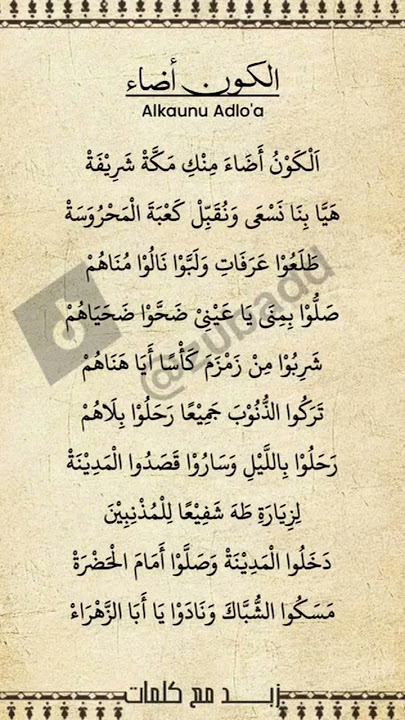 الكون أضاء
Alkaunu Adlo'a
اَلْكَوْنُ أَضَاءَ مِنْكِ مَكَّةْ شَرِيْفَةْ
هَيَّا بِنَا نَسْعَى وَنُقَبِّلْ كَعْبَةَ الْمَحْرُوْسَةْ
طَلَعُوْا عَرَفَاتِ وَلَبَّوْا نَالُوْا مُنَاهُمْ
صَلُّوْا بِمِنَى يَا عَيْنِيْ ضَحَّوْا ضَحَيَاهُمْ
شَرِبُوْا مِنْ زَمْزَمَ كَأْسًا أَيَا هَنَاهُمْ
تَرَكُوا الذُّنُوْبَ جَمِيْعًا رَحَلُوْا بِلَاهُمْ
رَحَلُوْا بِاللَّيْلِ وَسَارُوْا قَصَدُوا الْمَدِيْنَةْ
لِزِيَارَةِ طَهَ شَفِيْعًا لِلْمُذْنِبِيْنَ
دَخَلُوا الْمَدِيْنَةْ وَصَلَّوْا أَمَامَ الْحَضْرَةْ
مَسَكُوا الشُّبَّاكَ وَنَادَوْا يَا أَبَا الزَّهْرَاءْ
@zubadd
زبد مع كلمات